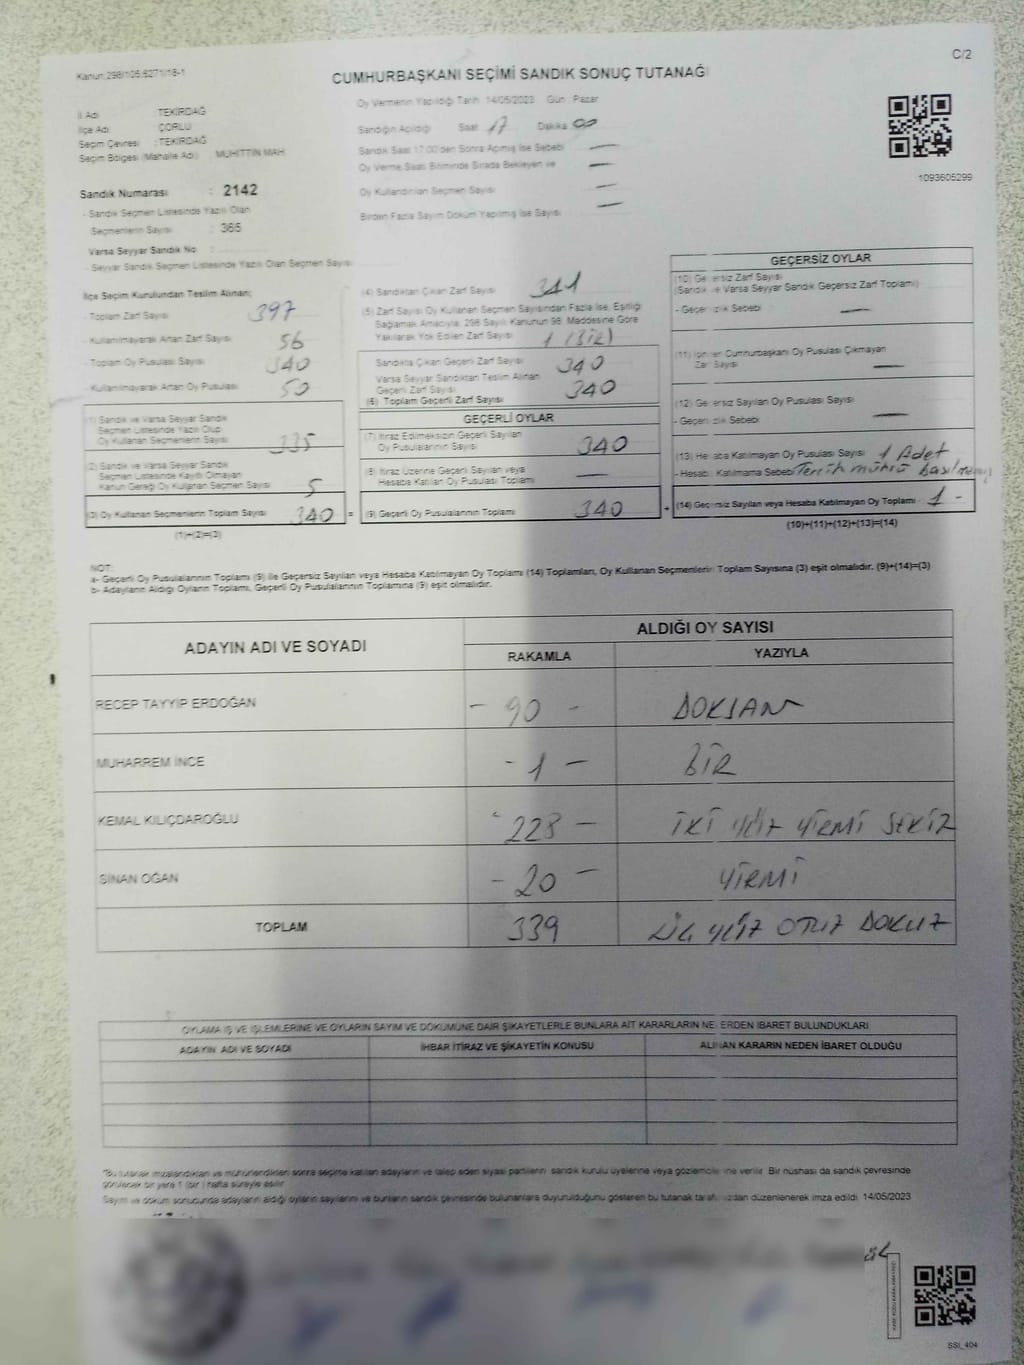 C/2
Kanun:298/105;6271/18-1
CUMHURBAŞKANI SEÇİMİ SANDIK SONUÇ TUTANAĞI
İl Adı TEKİRDAĞ
İlçe Adı ÇORLU
Seçim Çevresi : TEKİRDAĞ
Seçim Bölgesi (Mahalle Adı) MUHİTTİN MAH.
Oy Vermenin Yapıldığı Tarih 14/05/2023 Gün : Pazar
Sandığın Açıldığı Saat 17 Dakika 00
Sandık Saat 17:00'den Sonra Açılmış İse Sebebi —
Oy Verme Saati Bitiminde Sırada Bekleyen ve —
Oy Kullandırılan Seçmen Sayısı —
Birden Fazla Sayım Döküm Yapılmış İse Sayısı —
1093605299
Sandık Numarası : 2142
- Sandık Seçmen Listesinde Yazılı Olan
Seçmenlerin Sayısı : 365
Varsa Seyyar Sandık No :
- Seyyar Sandık Seçmen Listesinde Yazılı Olan Seçmen Sayısı
İlçe Seçim Kurulundan Teslim Alınan;
- Toplam Zarf Sayısı 397
- Kullanılmayarak Artan Zarf Sayısı 56
- Toplam Oy Pusulası Sayısı
- Kullanılmayarak Artan Oy Pusulası 50
(1) Sandık ve Varsa Seyyar Sandık
Seçmen Listesinde Yazılı Olup
Oy Kullanan Seçmenlerin Sayısı 335
(2) Sandık ve Varsa Seyyar Sandık
Seçmen Listesinde Kayıtlı Olmayan
Kanun Gereği Oy Kullanan Seçmen Sayısı 5
(3) Oy Kullanan Seçmenlerin Toplam Sayısı 340 =
(1)+(2)=(3)
(4) Sandıktan Çıkan Zarf Sayısı 341
(5) Zarf Sayısı Oy Kullanan Seçmen Sayısından Fazla İse, Eşitliği
Sağlamak Amacıyla, 298 Sayılı Kanunun 98. Maddesine Göre
Yakılarak Yok Edilen Zarf Sayısı 1 (BİR)
Sandıkta Çıkan Geçerli Zarf Sayısı 340
Varsa Seyyar Sandıktan Teslim Alınan
Geçerli Zarf Sayısı
(6) Toplam Geçerli Zarf Sayısı 340
GEÇERLİ OYLAR
(7) İtiraz Edilmeksizin Geçerli Sayılan
Oy Pusulalarının Sayısı 340
(8) İtiraz Üzerine Geçerli Sayılan veya
Hesaba Katılan Oy Pusulası Toplamı —
(9) Geçerli Oy Pusulalarının Toplamı 340 +
GEÇERSİZ OYLAR
(10) Geçersiz Zarf Sayısı
(Sandık ve Varsa Seyyar Sandık Geçersiz Zarf Toplamı)
- Geçersizlik Sebebi —
(11) İçinden Cumhurbaşkanı Oy Pusulası Çıkmayan
Zarf Sayısı —
(12) Geçersiz Sayılan Oy Pusulası Sayısı
- Geçersizlik Sebebi —
(13) Hesaba Katılmayan Oy Pusulası Sayısı 1 Adet
- Hesaba Katılmama Sebebi Tercih mührü basılmamış
(14) Geçersiz Sayılan veya Hesaba Katılmayan Oy Toplamı 1 -
(10)+(11)+(12)+(13)=(14)
NOT:
a- Geçerli Oy Pusulalarının Toplamı (9) ile Geçersiz Sayılan veya Hesaba Katılmayan Oy Toplamı (14) Toplamları, Oy Kullanan Seçmenlerin Toplam Sayısına (3) eşit olmalıdır. (9)+(14)=(3)
b- Adayların Aldığı Oyların Toplamı, Geçerli Oy Pusulalarının Toplamına (9) eşit olmalıdır.
ADAYIN ADI VE SOYADI ALDIĞI OY SAYISI
RAKAMLA YAZIYLA
RECEP TAYYİP ERDOĞAN - 90 - DOKSAN
MUHARREM İNCE - 1 - BİR
KEMAL KILIÇDAROĞLU - 228 - İKİ YÜZ YİRMİ SEKİZ
SİNAN OĞAN - 20 - YİRMİ
TOPLAM 339 ÜÇ YÜZ OTUZ DOKUZ
OYLAMA İŞ VE İŞLEMLERİNE VE OYLARIN SAYIM VE DÖKÜMÜNE DAİR ŞİKAYETLERLE BUNLARA AİT KARARLARIN NELERDEN İBARET BULUNDUKLARI
ADAYIN ADI VE SOYADI İHBAR İTİRAZ VE ŞİKAYETİN KONUSU ALINAN KARARIN NEDEN İBARET OLDUĞU
*Bu tutanak imzalandıktan ve mühürlendikten sonra seçime katılan adayların ve talep eden siyasi partilerin sandık kurulu üyelerine veya gözlemcilerine verilir. Bir nüshası da sandık çevresinde
görülecek bir yere 1 (bir) hafta süreyle asılır.
Sayım ve döküm sonucunda adayların aldığı oyların sayılarını ve bunların sandık çevresinde bulunanlara duyurulduğunu gösteren bu tutanak tarafımızdan düzenlenerek imza edildi. 14/05/2023
SSI_404